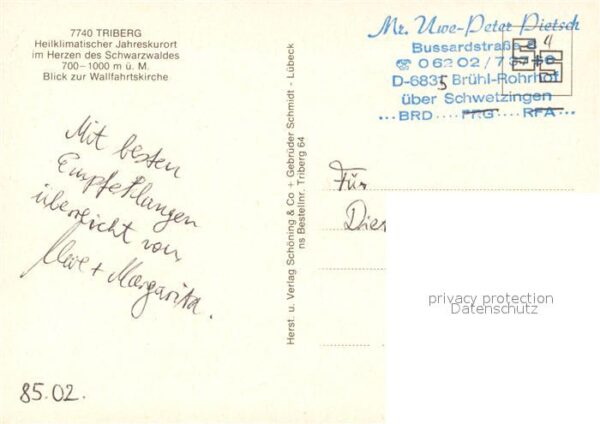 7740 TRIBERG
Heilklimatischer Jahreskurort
im Herzen des Schwarzwaldes
700–1000 m ü. M.
Blick zur Wallfahrtskirche
Mit besten
Empfehlungen
überreicht von
Uwe + Margarita.
85.02.
Herst. u. Verlag Schöning & Co + Gebrüder Schmidt - Lübeck
ns Bestellnr. Triberg 64
Mr. Uwe-Peter Pietsch
Bussardstraße 4
☎ 06202/
D-6835 Brühl-Rohrhof
über Schwetzingen
...BRD....FRG....RFA...
Für
privacy protection
Datenschutz